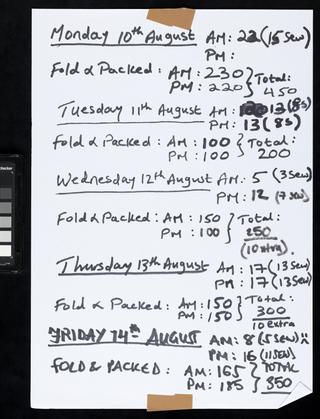 Monday 10th August AM: 22 (15 sew)
PM:
Fold & Packed: AM: 230 } Total:
PM: 220 } 450
Tuesday 11th August AM: 13 (8s)
PM: 13 (8s)
Fold & Packed: AM: 100 } Total:
PM: 100 } 200
Wednesday 12th August AM: 5 (3 sew)
PM: 12 (7 sew)
Fold & Packed: AM: 150 } Total:
PM: 100 } 250
(10 extra).
Thursday 13th August AM: 17 (13 sew)
PM: 17 (13 sew)
Fold & Packed: AM: 150 } Total:
PM: 150 } 300
10 extra
FRIDAY 14th AUGUST AM: 8 (5 sew)
PM: 16 (11 sew)
FOLD & PACKED: AM: 165 } TOTAL
PM: 185 } 350